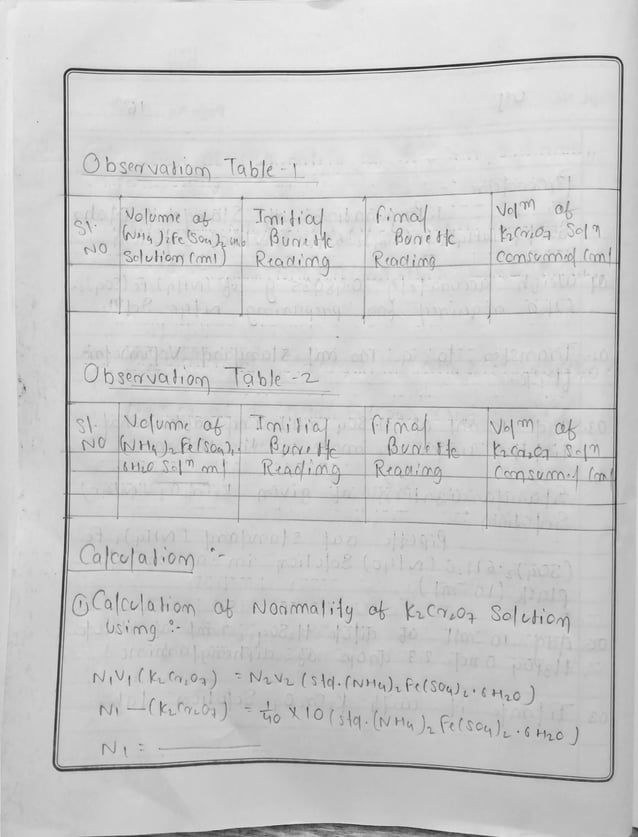 Observation Table - 1
Sl. NO
Volume of (NH4)2Fe(SO4)2 Solution (ml)
Initial Burette Reading
Final Burette Reading
Volm of K2Cr2O7 Soln Consumed (ml)
Observation Table - 2
Sl. NO
Volume of (NH4)2Fe(SO4)2. 6H2O Soln ml
Initial Burette Reading
Final Burette Reading
Volm of K2Cr2O7 Soln Consumed (ml
Calculation :-
① Calculation of Normality of K2Cr2O7 Solution
using :-
N1V1 (K2Cr2O7) = N2V2 (std. (NH4)2 Fe(SO4)2 . 6H2O)
N1 — (K2Cr2O7) = 1/40 × 10 (std. (NH4)2 Fe(SO4)2 . 6H2O)
N1 = ________